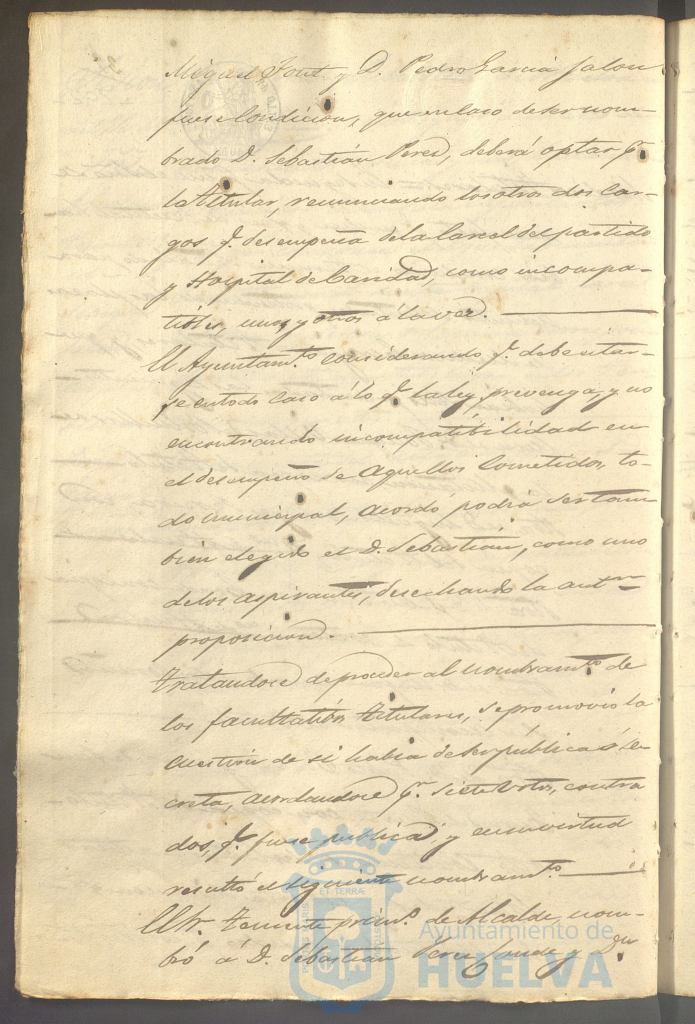 Miguel Font y D. Pedro Garcia Jalon
fuese condicion, que en caso de ser nom-
brado D. Sebastián Perez, deberá optar pr.
la titular, renunciando los otros dos car-
gos q. desempeña de la Carcel del partido
y Hospital de Caridad, como incompa-
tibles, unos y otros á la vez.
El Ayuntamto. considerando q. debe estar-
se en todo caso á lo q. la ley prevenga, y no
encontrando incompatibilidad en
el desempeño de aquellos cometidos, to-
do municipal, acordó podría ser tam
bien elegido el D. Sebastián, como uno
de los aspirantes, desechando la antr.
proposicion.
Tratandose de proceder al nombramto. de
los facultativos titulares, se promovió la
cuestion de si habia de ser pública ó se-
creta, acordandose pr. siete votos, contra
dos, q. fuese publica, y en su virtud
resultó el siguiente nombramto.
El Sr. Teniente primo. de Alcalde, nom-
bró á D. Sebastian Perez y Dn.
Ayuntamiento de
HUELVA